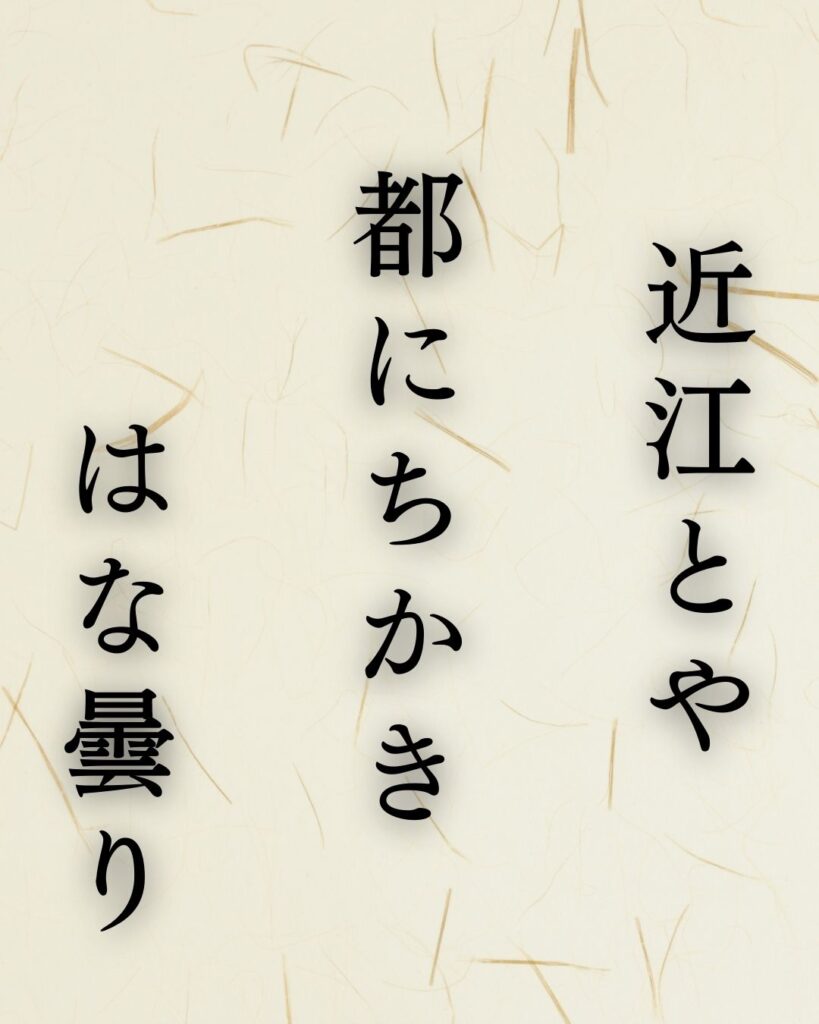 近江とや
都にちかき
はな曇り